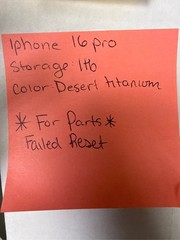 Iphone 16 pro
Storage: 1tb
Color: Desert titanium
* For Parts *
Failed Reset